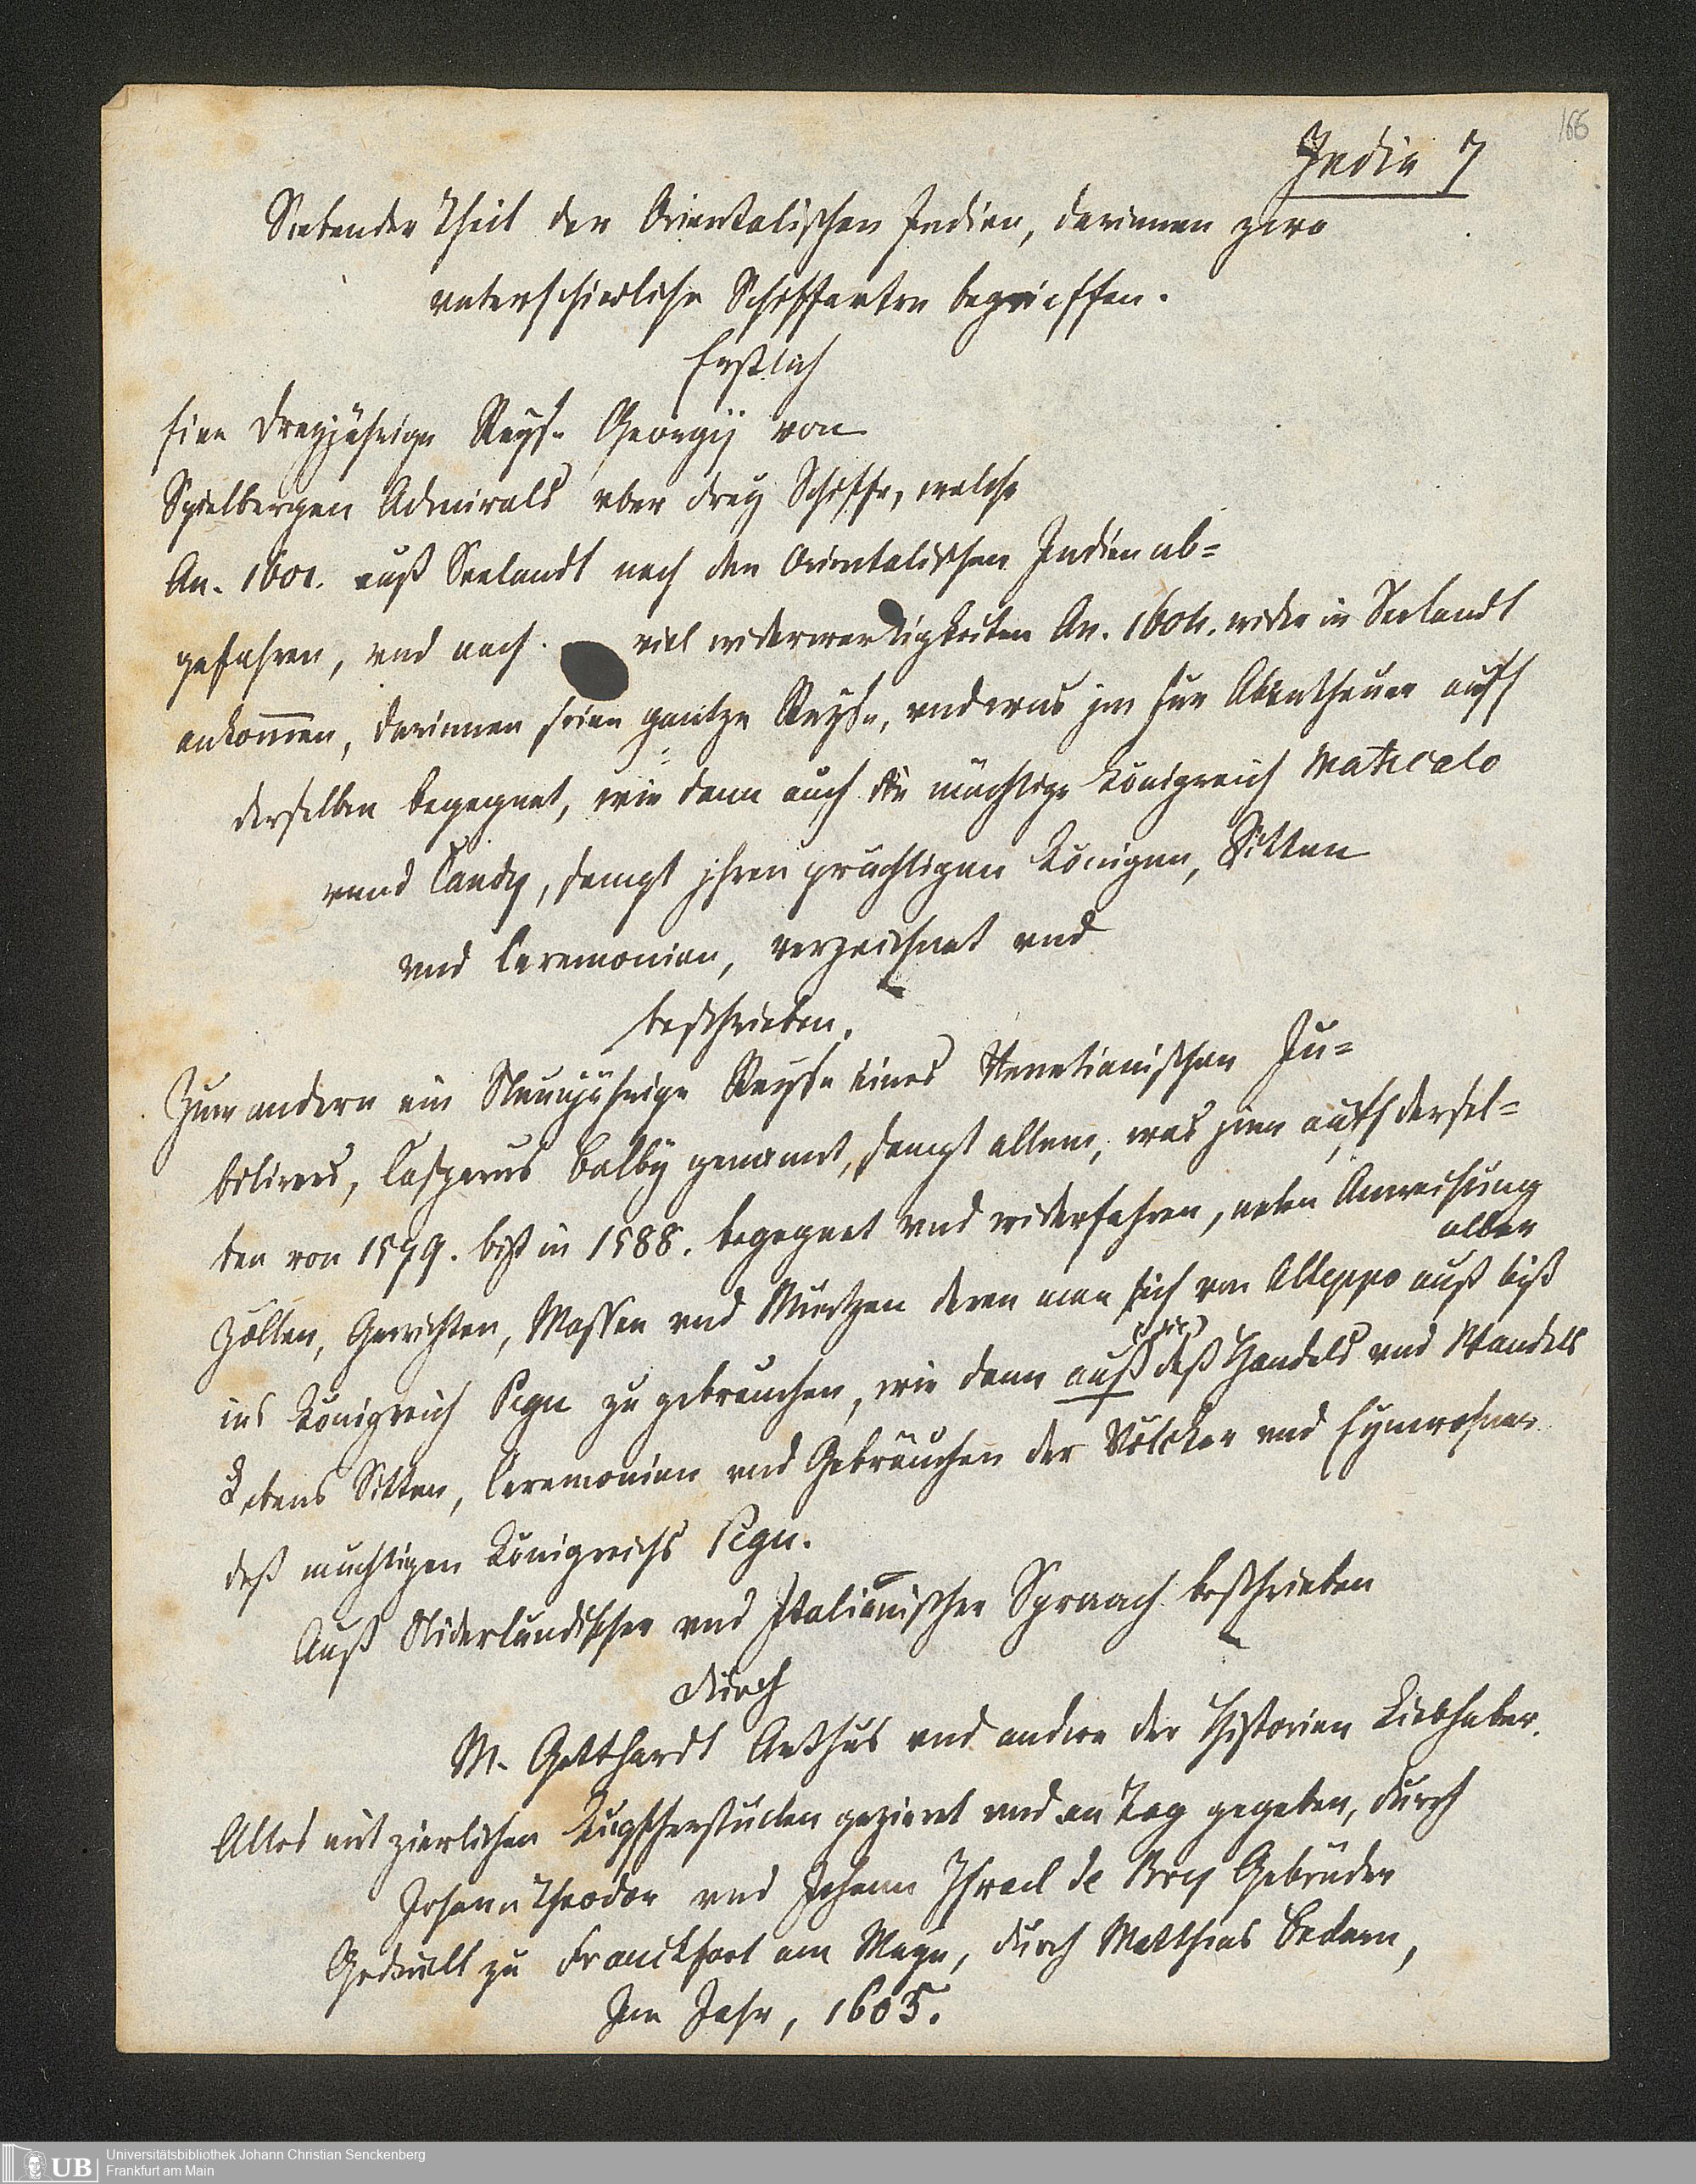 166
India 7
Siebender Theil der Orientalischen Indien, darinnen zwo
unterschiedliche Schiffarten begrieffen.
Erstlich
Eine dreyjährige Reyse Georgij von
Spielbergen Admirals uber drey Schiffe, welche
An. 1601. auß Seelandt nach den Orientalischen Indien ab=
gefahren, und nach viel widerwertigkeiten An. 1604. wider in Seelandt
ankom̄en, darinnen seine gantze Reyse, und was jm fur Abentheuer auff
derselben begegnet, wie dann auch die mächtige Königreich Maticalo
vnnd Candy, sampt jhren prächtigen Königen, Sitten
vnd Ceremonien, verzeichnet vnd
beschrieben.
Zum andern ein Neunjährige Reyse eines Venetianischen Ju=
bilirers, Casparus Balby genannt, sampt allem, was jme auff dersel=
ben von 1579. biß in 1588. begegnet vnd widerfahren, neben Anweisung
aller
Zöllen, Gewichten, Massen vnd Müntzen deren man sich von Alleppo auß biß
ins Königreich Pegu zu gebrauchen, wie dann auß (sic) deß Handels vnd Wandels
Lebens Sitten, Ceremonien vnd Gebräuchen der Völcker vnd Eynwohner
deß mächtigen Königreichs Pegu.
Auß Niderländischer vnd Italianischer Spraach beschrieben
durch
M. Gotthardt Arthus vnd andere der Historien Liebhaber.
Alles mit zierlichen Kupfferstucken gezieret vnd an Tag gegeben, durch
Johann Theodor vnd Johann Israel de Bry Gebrüder
Gedruckt zu Franckfort am Mayn, durch Matthias Beckern,
Im Jahr, 1605.
UB
Universitätsbibliothek Johann Christian Senckenberg
Frankfurt am Main